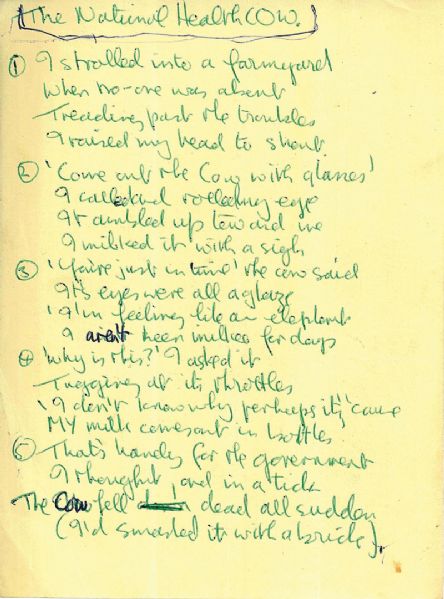 The National Health COW.
① I strolled into a farmyard
When no-one was about
Treading past the troubles
I raised my head to shout.
② 'Come out the Cow with glasses'
I called and rolled my eye
It ambled up toward me
I milked it with a sigh
③ 'You're just in time' the cow said
It's eyes were all aglaze
'I'm feeling like an elephant
I aren't been milked for days
④ 'Why is this?' I asked it
Tugging at its throttles
'I don't know why perhaps it's 'cause
MY milk comes out in bottles.
⑤ That's handy for the government
I thought, and in a tick
The Cow fell dead all sudden
(I'd smashed it with a brick).